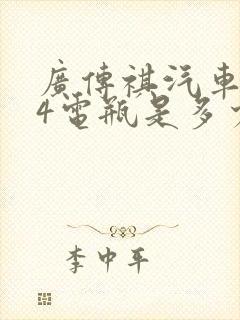 廣傳祺汽車
4電瓶是多
李中平